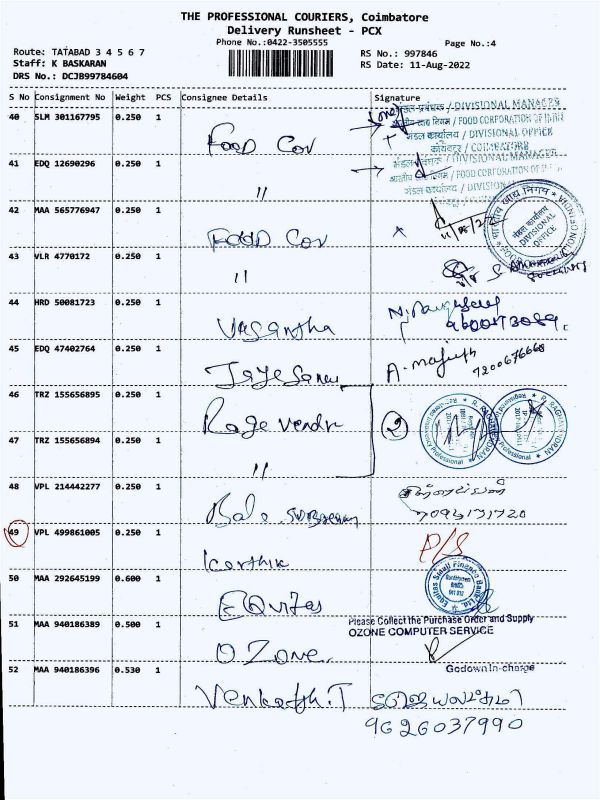 THE PROFESSIONAL COURIERS, Coimbatore
Delivery Runsheet - PCX
Phone No.:0422-3505555
Page No.:4
Route: TATABAD 3 4 5 6 7
RS No.: 997846
Staff: K BASKARAN
RS Date: 11-Aug-2022
DRS No.: DCJB99784604
S No Consignment No Weight PCS Consignee Details Signature
40 SLM 301167795 0.250 1 Food Cor
मंडल प्रबंधक / DIVISIONAL MANAGER
भारतीय खाद्य निगम / FOOD CORPORATION OF INDIA
मंडल कार्यालय / DIVISIONAL OFFICE
कोयंबटूर / COIMBATORE
41 EDQ 12690296 0.250 1 "
DIVISIONAL MANAGER
भारतीय खाद्य निगम / FOOD CORPORATION OF INDIA
मंडल कार्यालय / DIVISIONAL
42 MAA 565776947 0.250 1 FOOD Cor
भारतीय खाद्य निगम
मंडल कार्यालय
DIVISIONAL OFFICE
43 VLR 4770172 0.250 1 "
44 HRD 50081723 0.250 1 Vasantha
45 EDQ 47402764 0.250 1
A. 7200676668
46 TRZ 155656895 0.250 1 Rage vendr 2
R. RAGHAVENDRAN
47 TRZ 155656894 0.250 1 "
48 VPL 214442277 0.250 1 Bala
49 VPL 499861005 0.250 1 Karthik P/S
50 MAA 292645199 0.600 1 EQuitas
Equitas Small Finance Bank Ltd.
51 MAA 940186389 0.500 1 OZone
Please Collect the Purchase Order and Supply
OZONE COMPUTER SERVICE
Godown In-charge
52 MAA 940186396 0.530 1 Venkatsh.T
9626037990